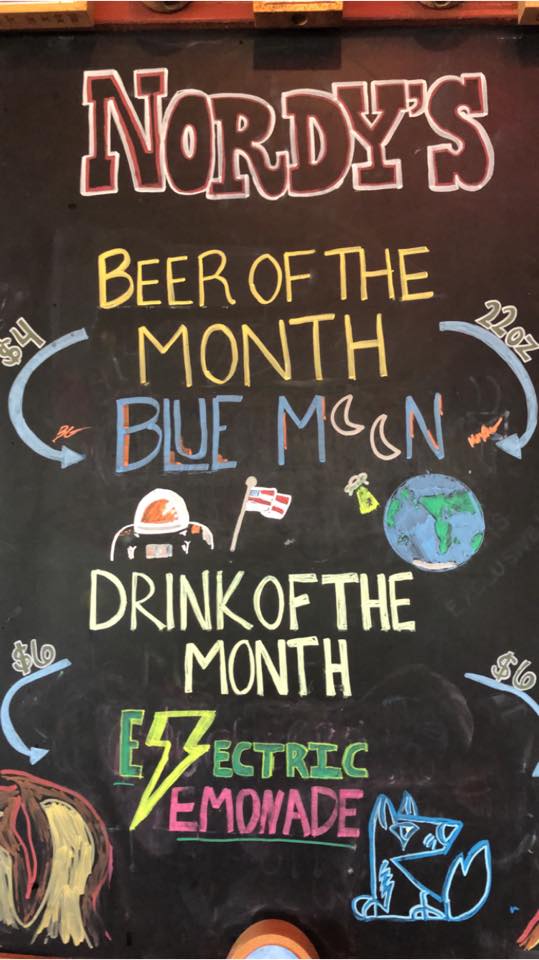 NORDY'S
BEER OF THE
MONTH
$4
22oz
BLUE MOON
DRINK OF THE
MONTH
$6
$6
ELECTRIC
LEMONADE